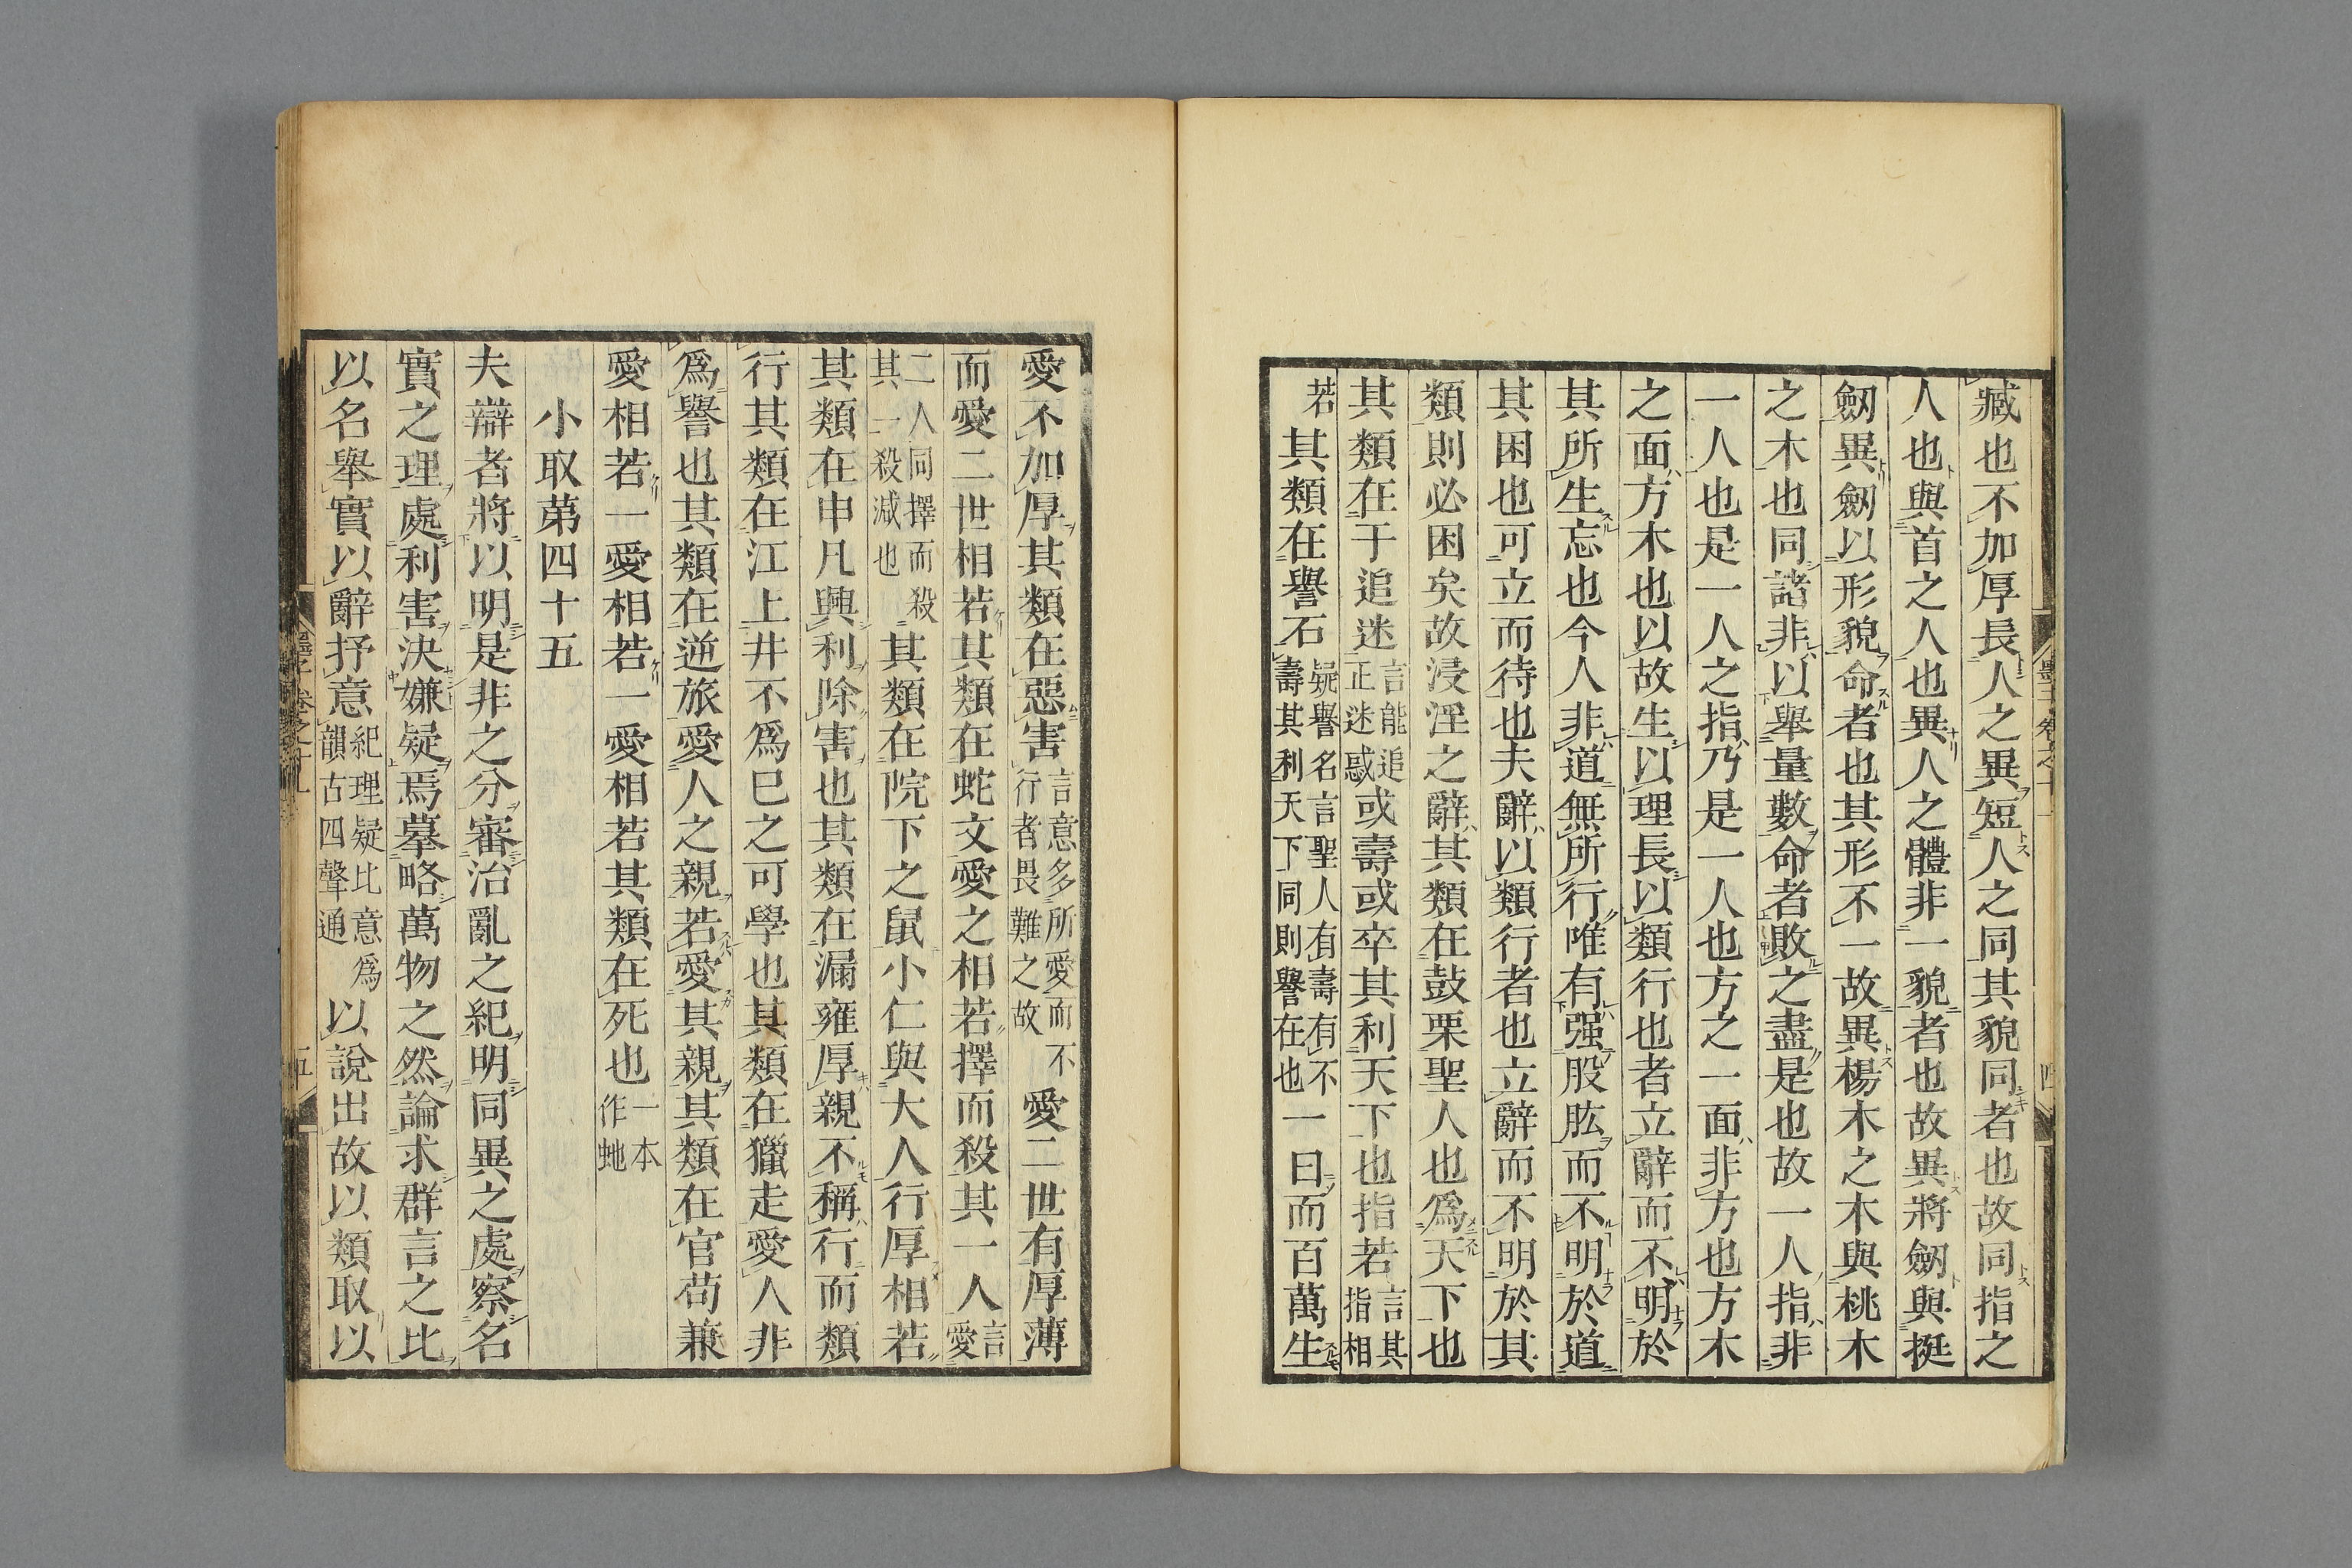 臧也不加厚長人之異短人之同其貌同者也故同指之
人也與首之人也異人之體非一貌者也故異將劒與挺
劒異劒以形貌命者也其形不一故異楊木之木與桃木
之木也同諸非以舉量數命者敗之盡是也故一人指非
一人也是一人之指乃是一人也方之一面非方也方木
之面方木也以故生以理長以類行也者立辭而不明於
其所生忘也今人非道無所行唯有强股肱而不明於道
其困也可立而待也夫辭以類行者也立辭而不明於其
類則必困矣故浸淫之辭其類在鼓栗聖人也爲天下也
其類在于追迷言能追正迷惑或壽或卒其利天下也指若言其指相
若其類在譽石疑譽名言聖人有壽有不壽其利天下同則譽在也一日而百萬生
愛不加厚其類在惡害言意多所愛而不行者畏難之故愛二世有厚薄
而愛二世相若其類在蛇文愛之相若擇而殺其一人言愛
二人同擇而殺其一殺減也其類在院下之鼠小仁與大人行厚相若
其類在申凡興利除害也其類在漏雍厚親不稱行而類
行其類在江上井不爲巳之可學也其類在獵走愛人非
爲譽也其類在逆旅愛人之親若愛其親其類在官苟兼
愛相若一愛相若一愛相若其類在死也一本作虵
小取第四十五
夫辯者將以明是非之分審治亂之紀明同異之處察名
實之理處利害決嫌疑焉摹略萬物之然論求群言之比
以名舉實以辭抒意紀理疑比意爲韻古四聲通以說出故以類取以